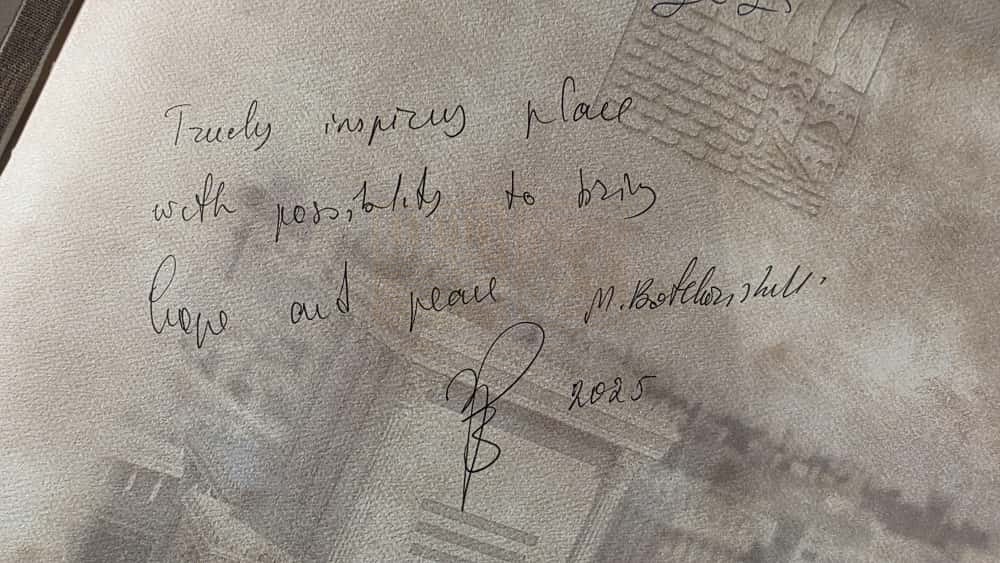 2025
Truely inspiring place
with possibility to bring
hope and peace
2025